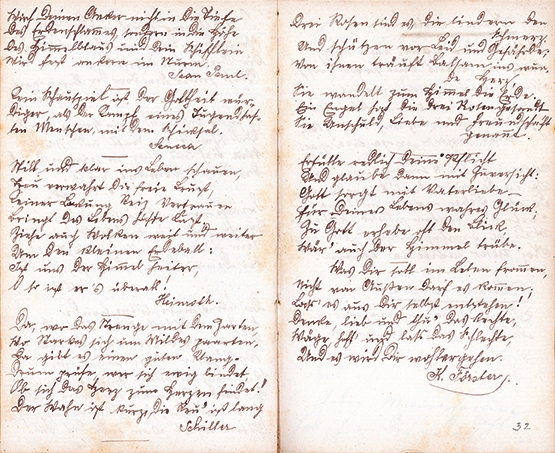 Wirf Deinen Anker nicht in die Tiefe
des Erdenschlammes, sondern in die Höhe
des Himmelblaus und Dein Schifflein
wird fest ankern im Sturm.
Jean Paul.
Kein Schauspiel ist der Gottheit wür-
diger, als der Kampf eines Tugendhaf-
ten Menschen mit dem Schicksal.
Seneca
Still und klar ins Leben schauen,
Treu verwahrt die freie Brust,
Keiner Lockung Reiz vertrauen
bringt des Lebens höchste Lust,
Zieht auch Wolken weit und weiter
Um den kleinen Erdeball:
Ist uns der Himmel heiter,
O so ist er's überall!
Denn, wo das Strenge mit dem Zarten,
Wo Starkes sich und Mildes paarten,
Da gibt es einen guten Klang.
Drum prüfe, wer sich ewig bindet
Ob sich das Herz zum Herzen findet!
Der Wahn ist kurz, die Reu' ist lang
Schiller
Drei Rosen sind es, die lindern den
Schmerz
Und schützen vor Leid und Gefährde,
Von ihnen träuft Balsam ins wun-
de Herz,
Sie wandelt zum Himmel die Erde.
Ein Engel hat die drei Rosen gesandt
Sie Unschuld, Liebe und Freundschaft
genannt.
Erfülle redlich Deine Pflicht
Und glaube dann mit Zuversicht:
Gott sorgt mit Vaterliebe
Für Deines Lebens wahres Glück;
Zu Gott erhebe oft den Blick,
Wär' auch der Himmel trübe.
Was Dir soll im Leben frommen,
Nicht von Außen darf es kommen,
Laß' es aus Dir selbst entstehen!
Denke, lieb und thu' das Rechte,
Wäge, hoff' und laß das Schlechte,
Und es wird Dir wohlergehen.
K. Förster.
32